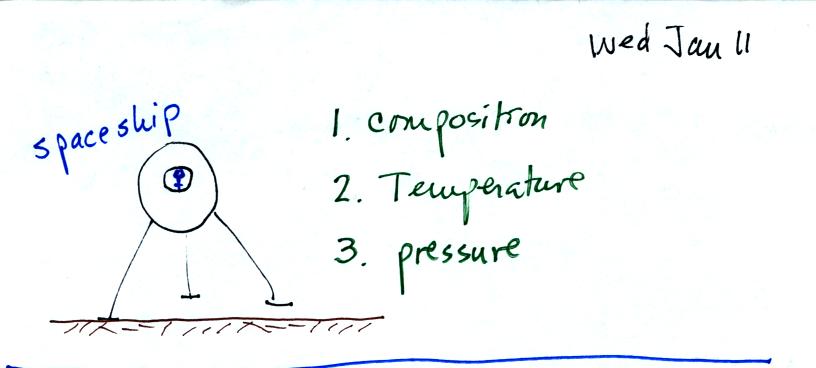 Wed Jan 11
spaceship
1. composition
2. Temperature
3. pressure